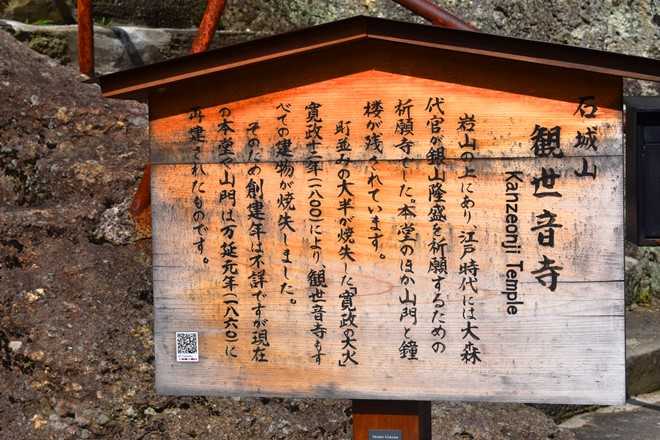 石城山
観世音寺
Kanzeonji Temple
岩山の上にあり、江戸時代には大森
代官が銀山隆盛を祈願するための
祈願寺でした。本堂のほか山門と鐘
楼が残されています。
町並みの大半が焼失した「寛政の大火」
寛政十二年(一八〇〇)により、観世音寺もす
べての建物が焼失しました。
そのため創建年は不詳ですが、現在
の本堂や山門は万延元年(一八六〇)に
再建されたものです。